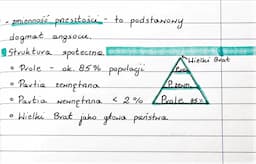 - zmienność przeszłości - to podstawowy
dogmat angsocu.
Struktura społeczna:
• Prole - ok. 85% populacji
• Partia zewnętrzna
• Partia wewnętrzna < 2%
• Wielki Brat jako głowa państwa.
Wielki Brat
Prole 85%